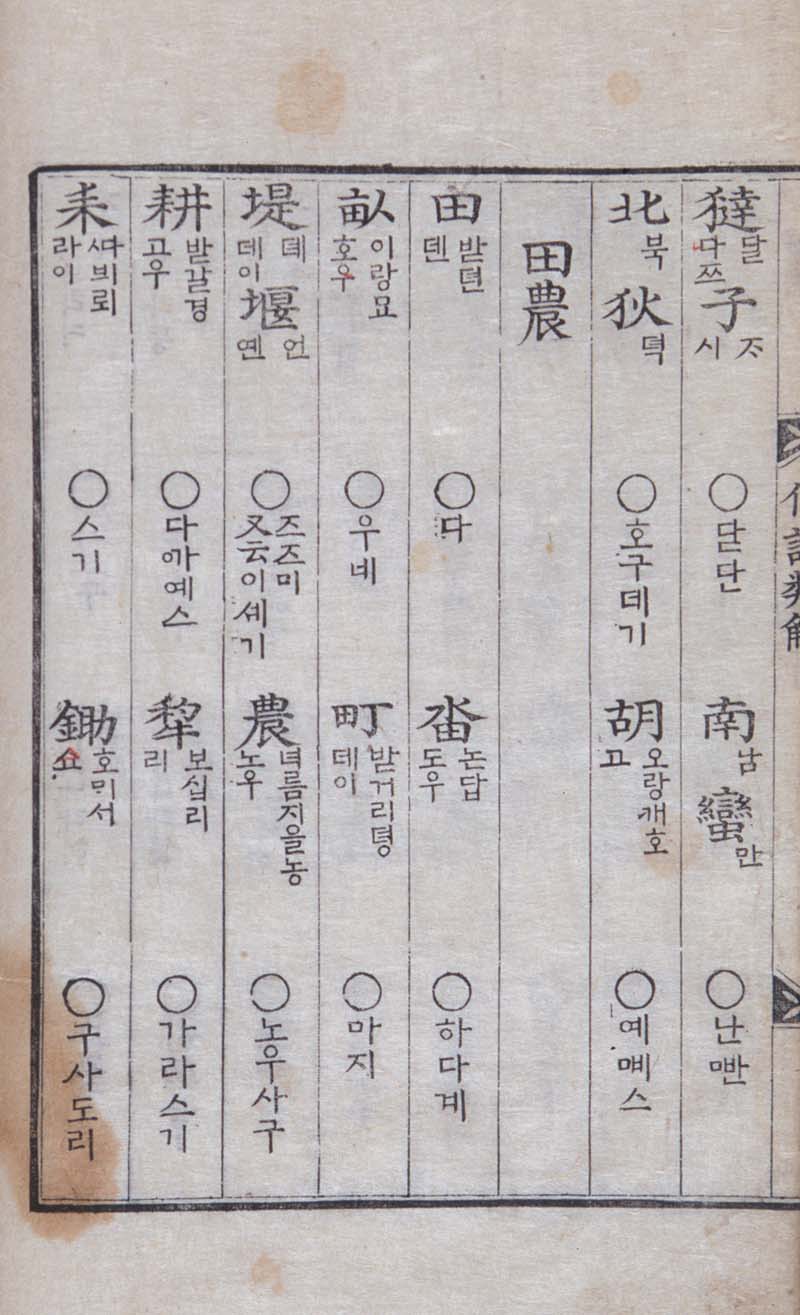 㺚달다쯔子ᄌᆞ시 ○단단 南남蠻만 ○난빤
北북狄뎍 ○호구데기 胡오랑캐호고 ○예몌스
田農
田받뎐덴 ○다 畓논답도우 ○하다계
畝이랑묘호우 ○우네 町받거리뎡데이 ○마지
堤뎨데이堰언옌 ○즈즈미又云이셰기 農녀름지을농노우 ○노우사구
耕받갈경고우 ○다까예스 犂보십리리 ○가라스기
耒ᄯᅡ븨뢰라이 ○스기 鋤호미서쇼 ○구사도리